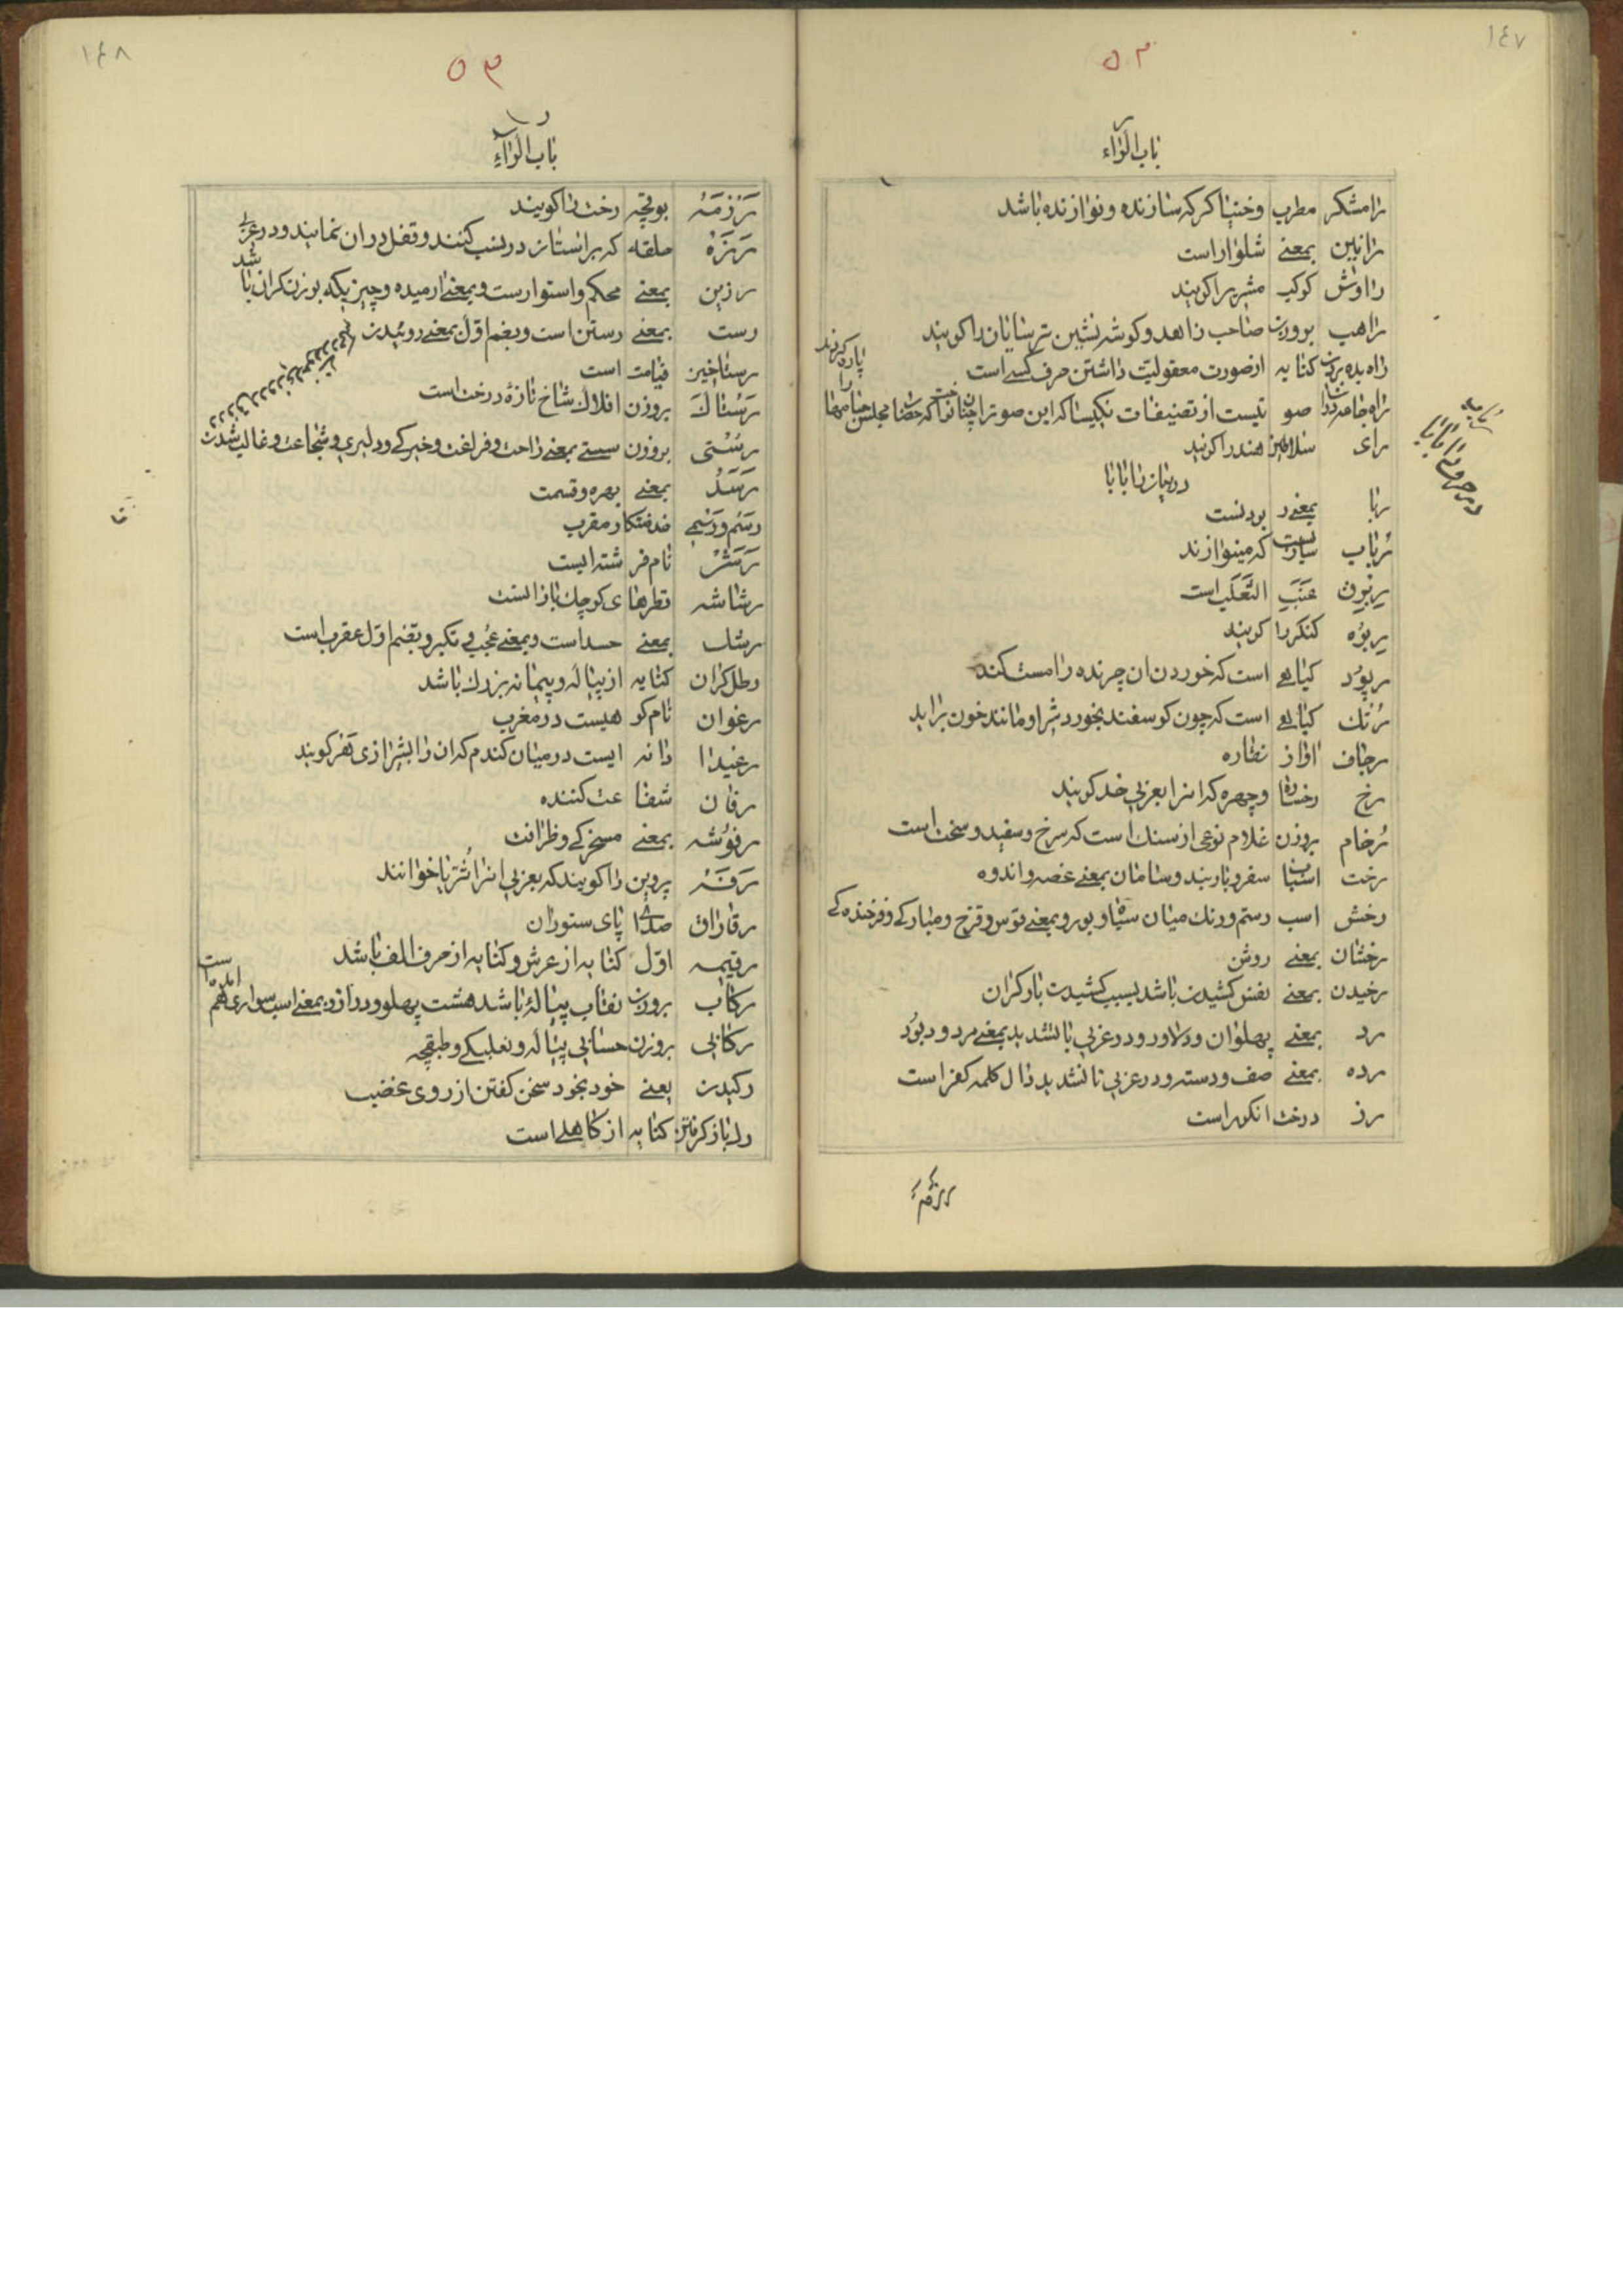 ١٤٧
٥٢
باب الراء
رامشکر مطرب وخنیاکر که سازنده ونوازنده باشد
رانین بمعنے شلوار است
راوش کوکب مشتری را کویند
راهب بروزن صاحب زاهد وکوشه نشین ترسایان را کویند
راه بده بردن کنایه ازصورت معقولیت داشتن حرف کسے است
راه جامه دران صوتیست از تصنیفات نکیسا که این صوت را چنان نواخت که حضار مجلس جامها را پاره کردند
رای سلاطین هند را کویند
در بیان را با با
ربا بمعنے ربودنست
رباب سازیست که مینوازند
ربرق عنب الثعلب است
ربوه کنکر را کویند
رپود کیاهے است که خوردن ان چرنده را مست کند
رتک کیاهے است که چون کوسفند بخورد شیر او مانند خون براید
رجاف اواز نقاره
رخ رخساره وچهره که انرا بعربی خد کویند
رخام بروزن غلام نوعی از سنک است که سرخ وسفید وسخت است
رخت اسباب سفر وباربند وسامان بمعنے غصه واندوه
رخش اسب رستم ورنک میان سیاه وبور وبمعنے قوس وقزح ومبارکے وفرخنده کے
رخشان بمعنے روشن
رخیدن بمعنے نفس کشیدن باشد بسبب کشیدن بار کران
رد بمعنے پهلوان ودلاور ودر عربی با تشدید بمعنے مردود بود
رده بمعنے صف ودسته ودر عربی با تشدید دال کلمه کفر است
رز درخت انکور است
رزمه
١٤٨
٥٣
باب الراء
رزمه بوغچه رخت را کویند
رزه حلقه که بر استانه در نصب کنند وقفل در ان نمایند ودر عربی
رزین بمعنے محکم واستوارست وبمعنے ارمیده وچیزیکه بوزن کران باشد
رست بمعنے رستن است وبضم اول بمعنے روئیدن
رستاخیز قیامت است
رستاک بروزن افلاک شاخ تازه درخت است
رستی بروزن سستے بمعنے راحت وفراغت وخیرکے ودلیری وشجاعت وغالب شدن
رسد بمعنے بهره وقسمت
خدمتکار مقرب
رش نام فرشته ایست
رشاشه قطرهای کوچک بارانست
رشک بمعنے حسد است وبمعنے عجب وتکبر وبضم اول عقرب است
رطل کران کنایه از پیاله وپیمانه بزرک باشد
رغوان نام کوهیست در مغرب
رغیدا دانه ایست در میان کندم که ان را بشیرازی تفر کویند
رفان شفاعت کننده
رفوشه بمعنے مسخرکے وظرافت
رفه پروین را کویند که بعربی انرا ثریا خوانند
رقاراق صدای پای ستوران
رقیمه اول کنایه از عرش وکنایه از حرف الف باشد
رکاب بروزن نقاب پیاله باشد هشت پهلو ودراز وبمعنے اسب سواری هم امده است
رکابی بروزن حسابی پیاله ونعلبکے وطبقچه
رکیدن یعنے خود بخود سخن کفتن از روی غضب
رک باز کرفتن کنایه از کاهلے است